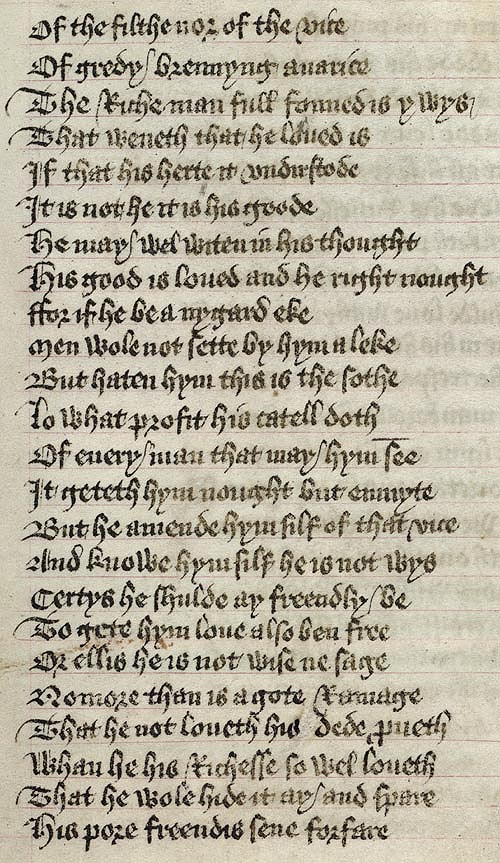 Of the filthe nor of the vice
Of gredy brennyng auarice
The Riche man full fonned is y wys
That weneth that he loued is
If that his herte it vndirstode
It is not he it is his goode
He may wel witen in his thought
His good is loued and he right nought
ffor if he be a nygard eke
Men wole not sette by hym a leke
But haten hym this is the sothe
Lo what profit his catell doth
Of euery man that may hym see
It geteth hym nought but enmyte
But he amende hym silf of that vice
And knowe hym silf he is not wys
Certys he shulde ay freendly be
To gete hym loue also ben free
Or ellis he is not wise ne sage
Nomore than is a gote Ramage
That he not loueth his dede ꝓueth
Whan he his Richesse so wel loueth
That he wole hide it ay and spare
His pore freendis sene forfare